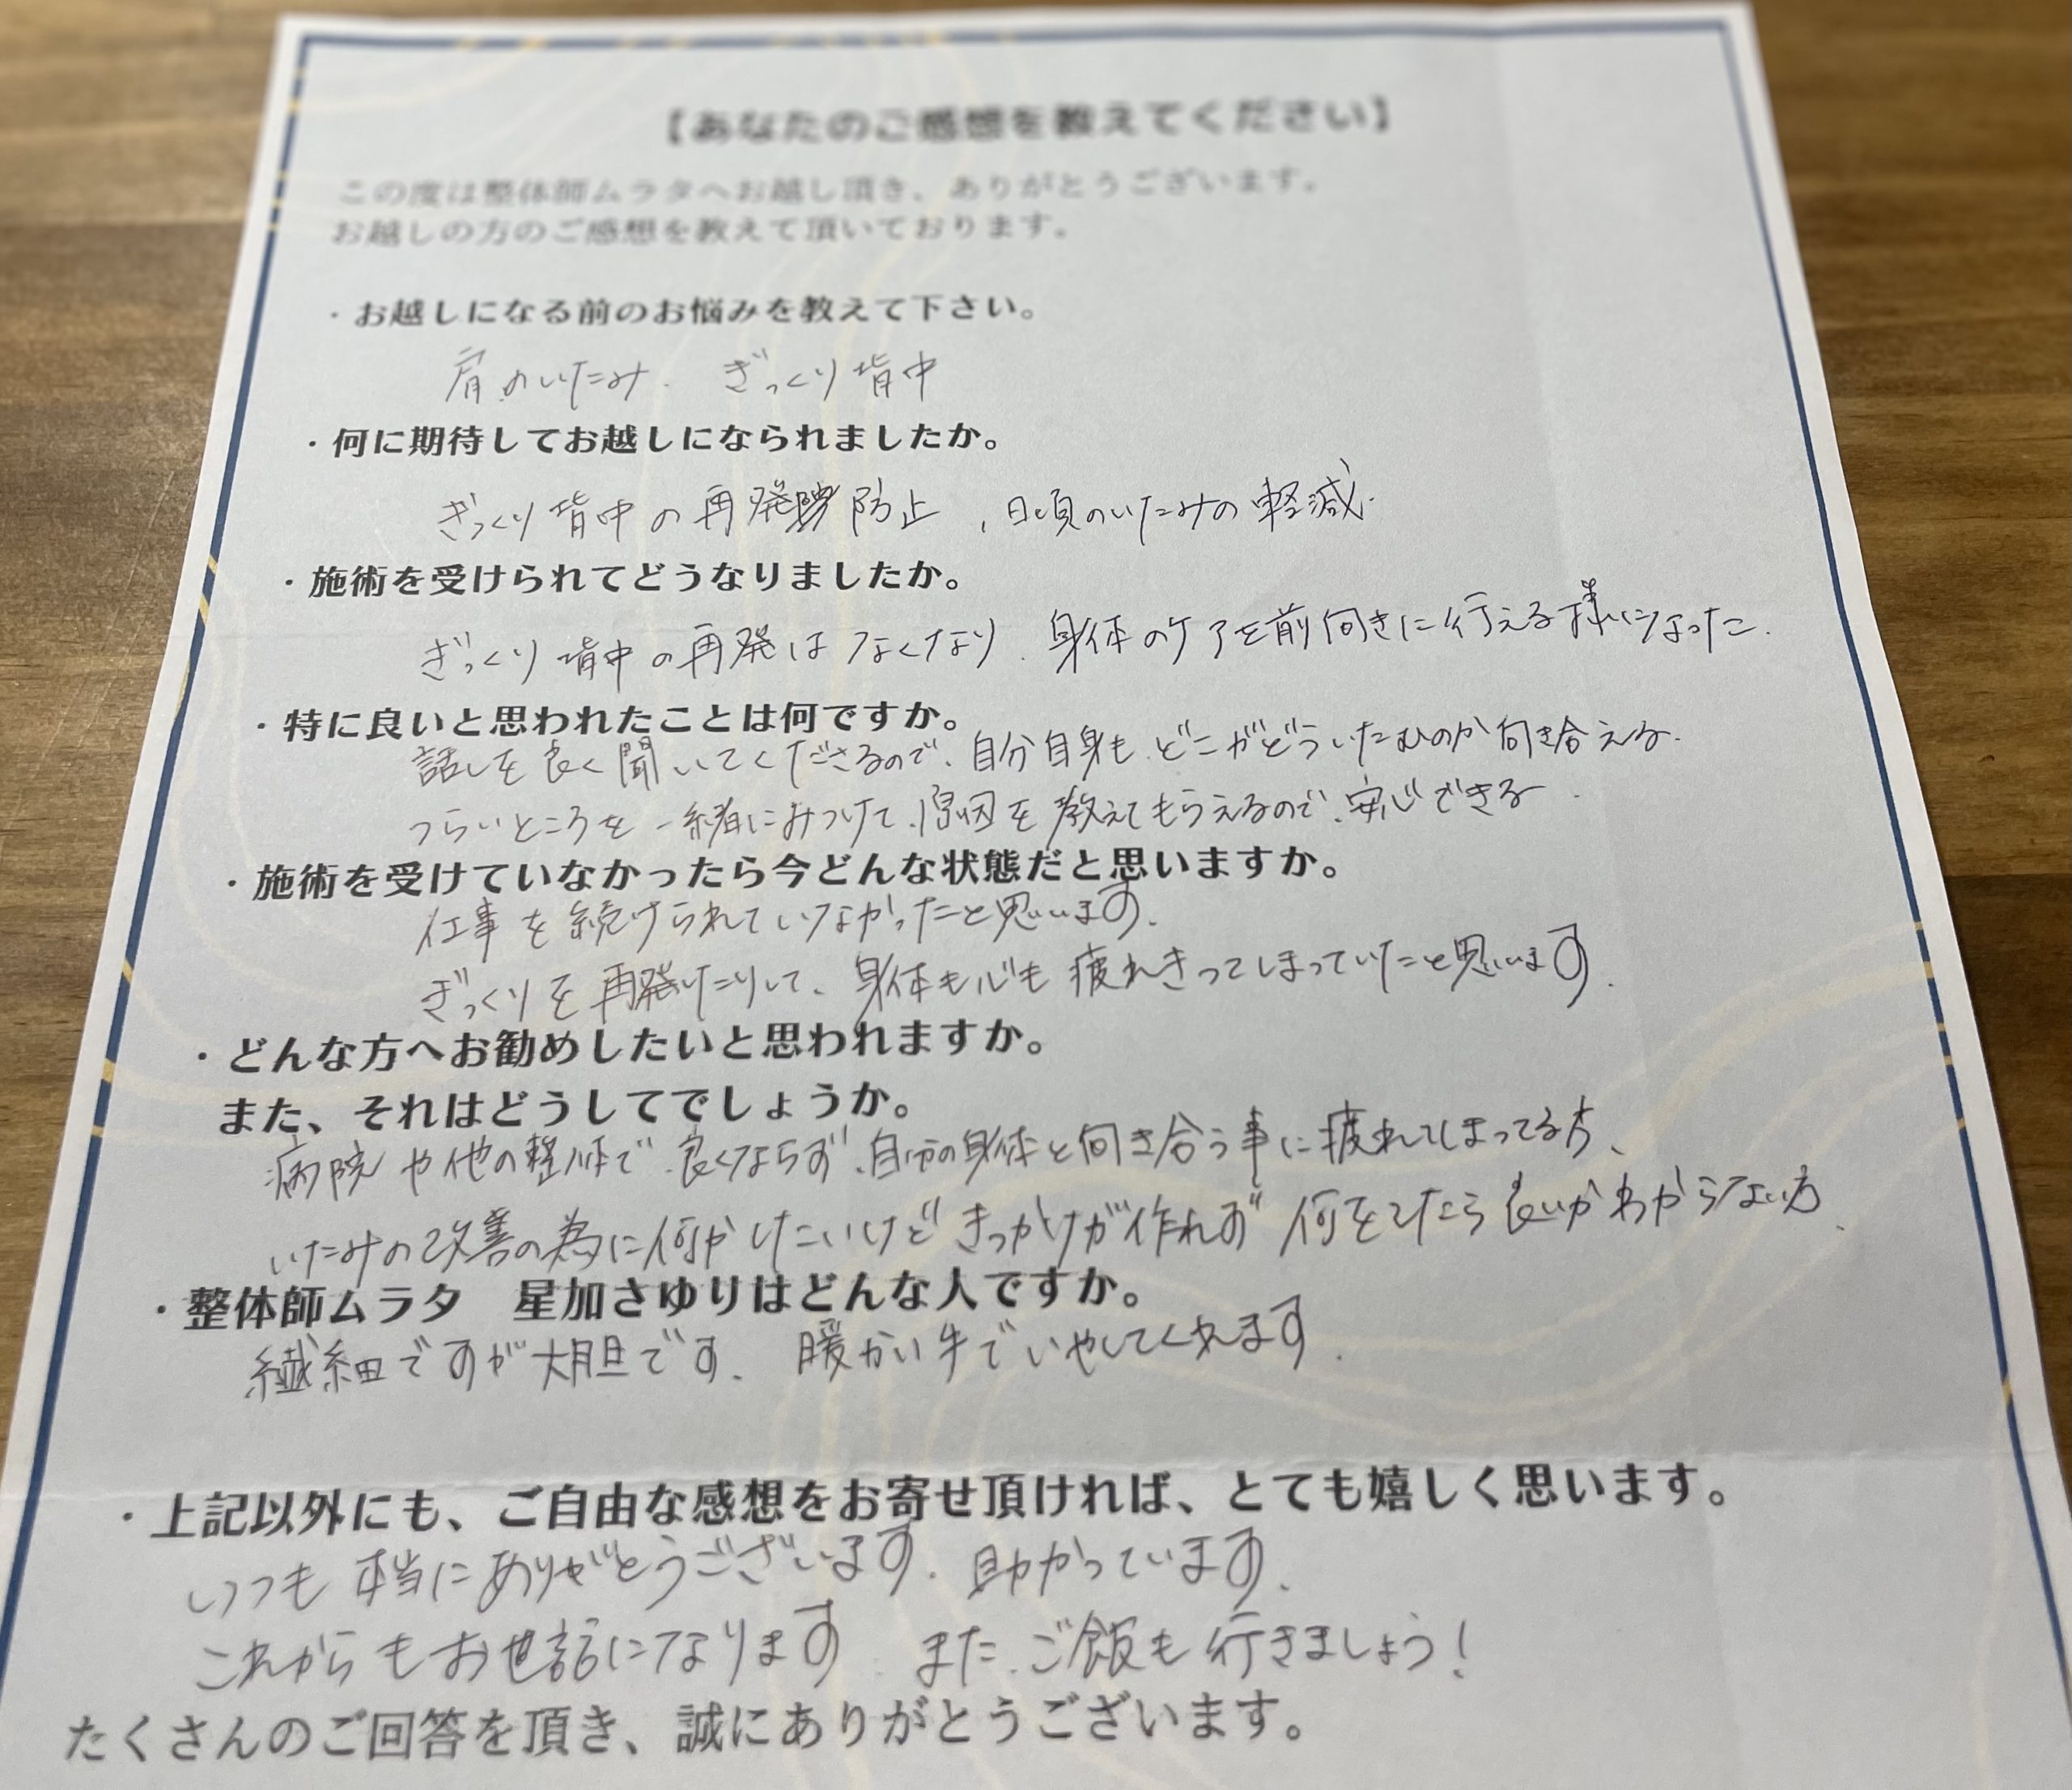 【あなたのご感想を教えてください】
この度は整体師ムラタへお越し頂き、ありがとうございます。
お越しの方のご感想を教えて頂いております。
・お越しになる前のお悩みを教えて下さい。
肩のいたみ. ぎっくり背中
・何に期待してお越しになられましたか。
ぎっくり背中の再発防止、日頃のいたみの軽減.
・施術を受けられてどうなりましたか。
ぎっくり背中の再発はなくなり、身体のケアを前向きに行える様になった.
・特に良いと思われたことは何ですか。
話しを良く聞いてくださるので、自分自身も どこがどういたむのか向き合える.
つらいところを一緒にみつけて、原因を教えてもらえるので、安心できる.
・施術を受けていなかったら今どんな状態だと思いますか。
仕事を続けられていなかったと思います.
ぎっくりを再発したりして、身体も心も疲れきってしまっていたと思います.
・どんな方へお勧めしたいと思われますか。
また、それはどうしてでしょうか。
病院や他の整体で、良くならず、自分の身体と向き合う事に疲れてしまってる方、
いたみの改善の為に何かしたいけど きっかけが作れず 何をしたら良いかわからない方.
・整体師ムラタ 星加さゆりはどんな人ですか。
繊細ですが大胆です. 暖かい手でいやしてくれます.
・上記以外にも、ご自由な感想をお寄せ頂ければ、とても嬉しく思います。
いつも本当にありがとうございます. 助かっています.
これからもお世話になります. また、ご飯も行きましょう!
たくさんのご回答を頂き、誠にありがとうございます。